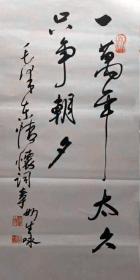 一萬年太久
只争朝夕
毛澤東情懷詞章